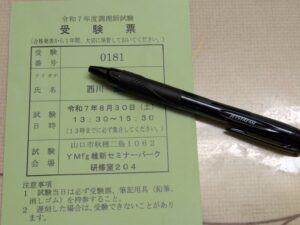 令和7年度調理師試験
受験票
(合格発表から1年間、大切に保管しておいてください。)
受験番号 0181
フリガナ
氏名 西川
試験日時 令和7年8月30日(土)
13:30～15:30
(13時までに必ず集合してください。)
試験会場 山口市秋穂二島1062
YMfg維新セミナーパーク
研修室204
注意事項
1 試験当日は必ず受験票、筆記用具(鉛筆、
消しゴム)を持参すること。
2 遅刻した場合は、受験できないことがあり
ます。